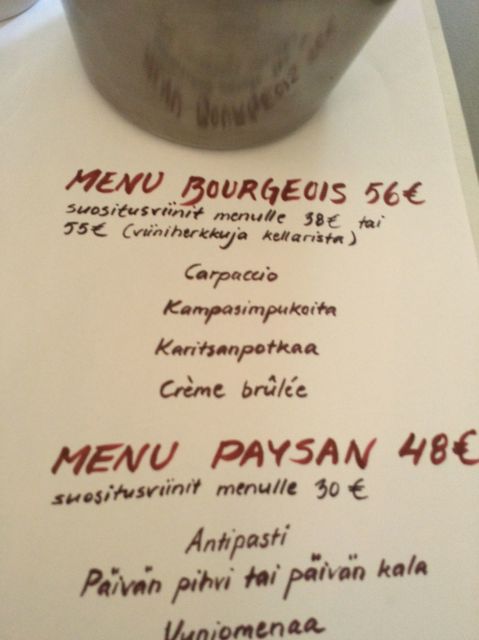 MENU BOURGEOIS 56€
suositusviinit menulle 38€ tai
55€ (viiniherkkuja kellarista)
Carpaccio
Kampasimpukoita
Karitsanpotkaa
Crème brûlée
MENU PAYSAN 48€
suositusviinit menulle 30€
Antipasti
Päivän pihvi tai päivän kala